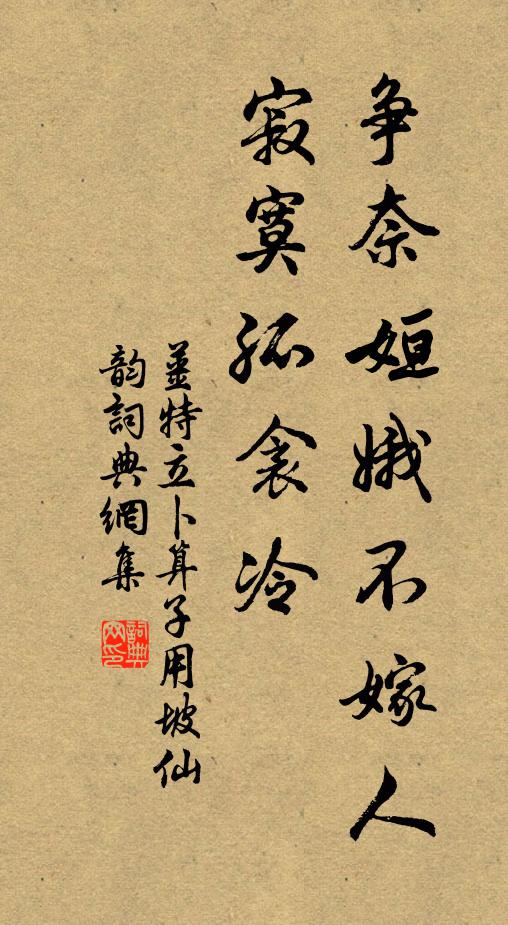 争奈姮娥不嫁人
寂寞孤衾冷
姜特立卜算子用坡仙
韵詞典網集
詞典网印